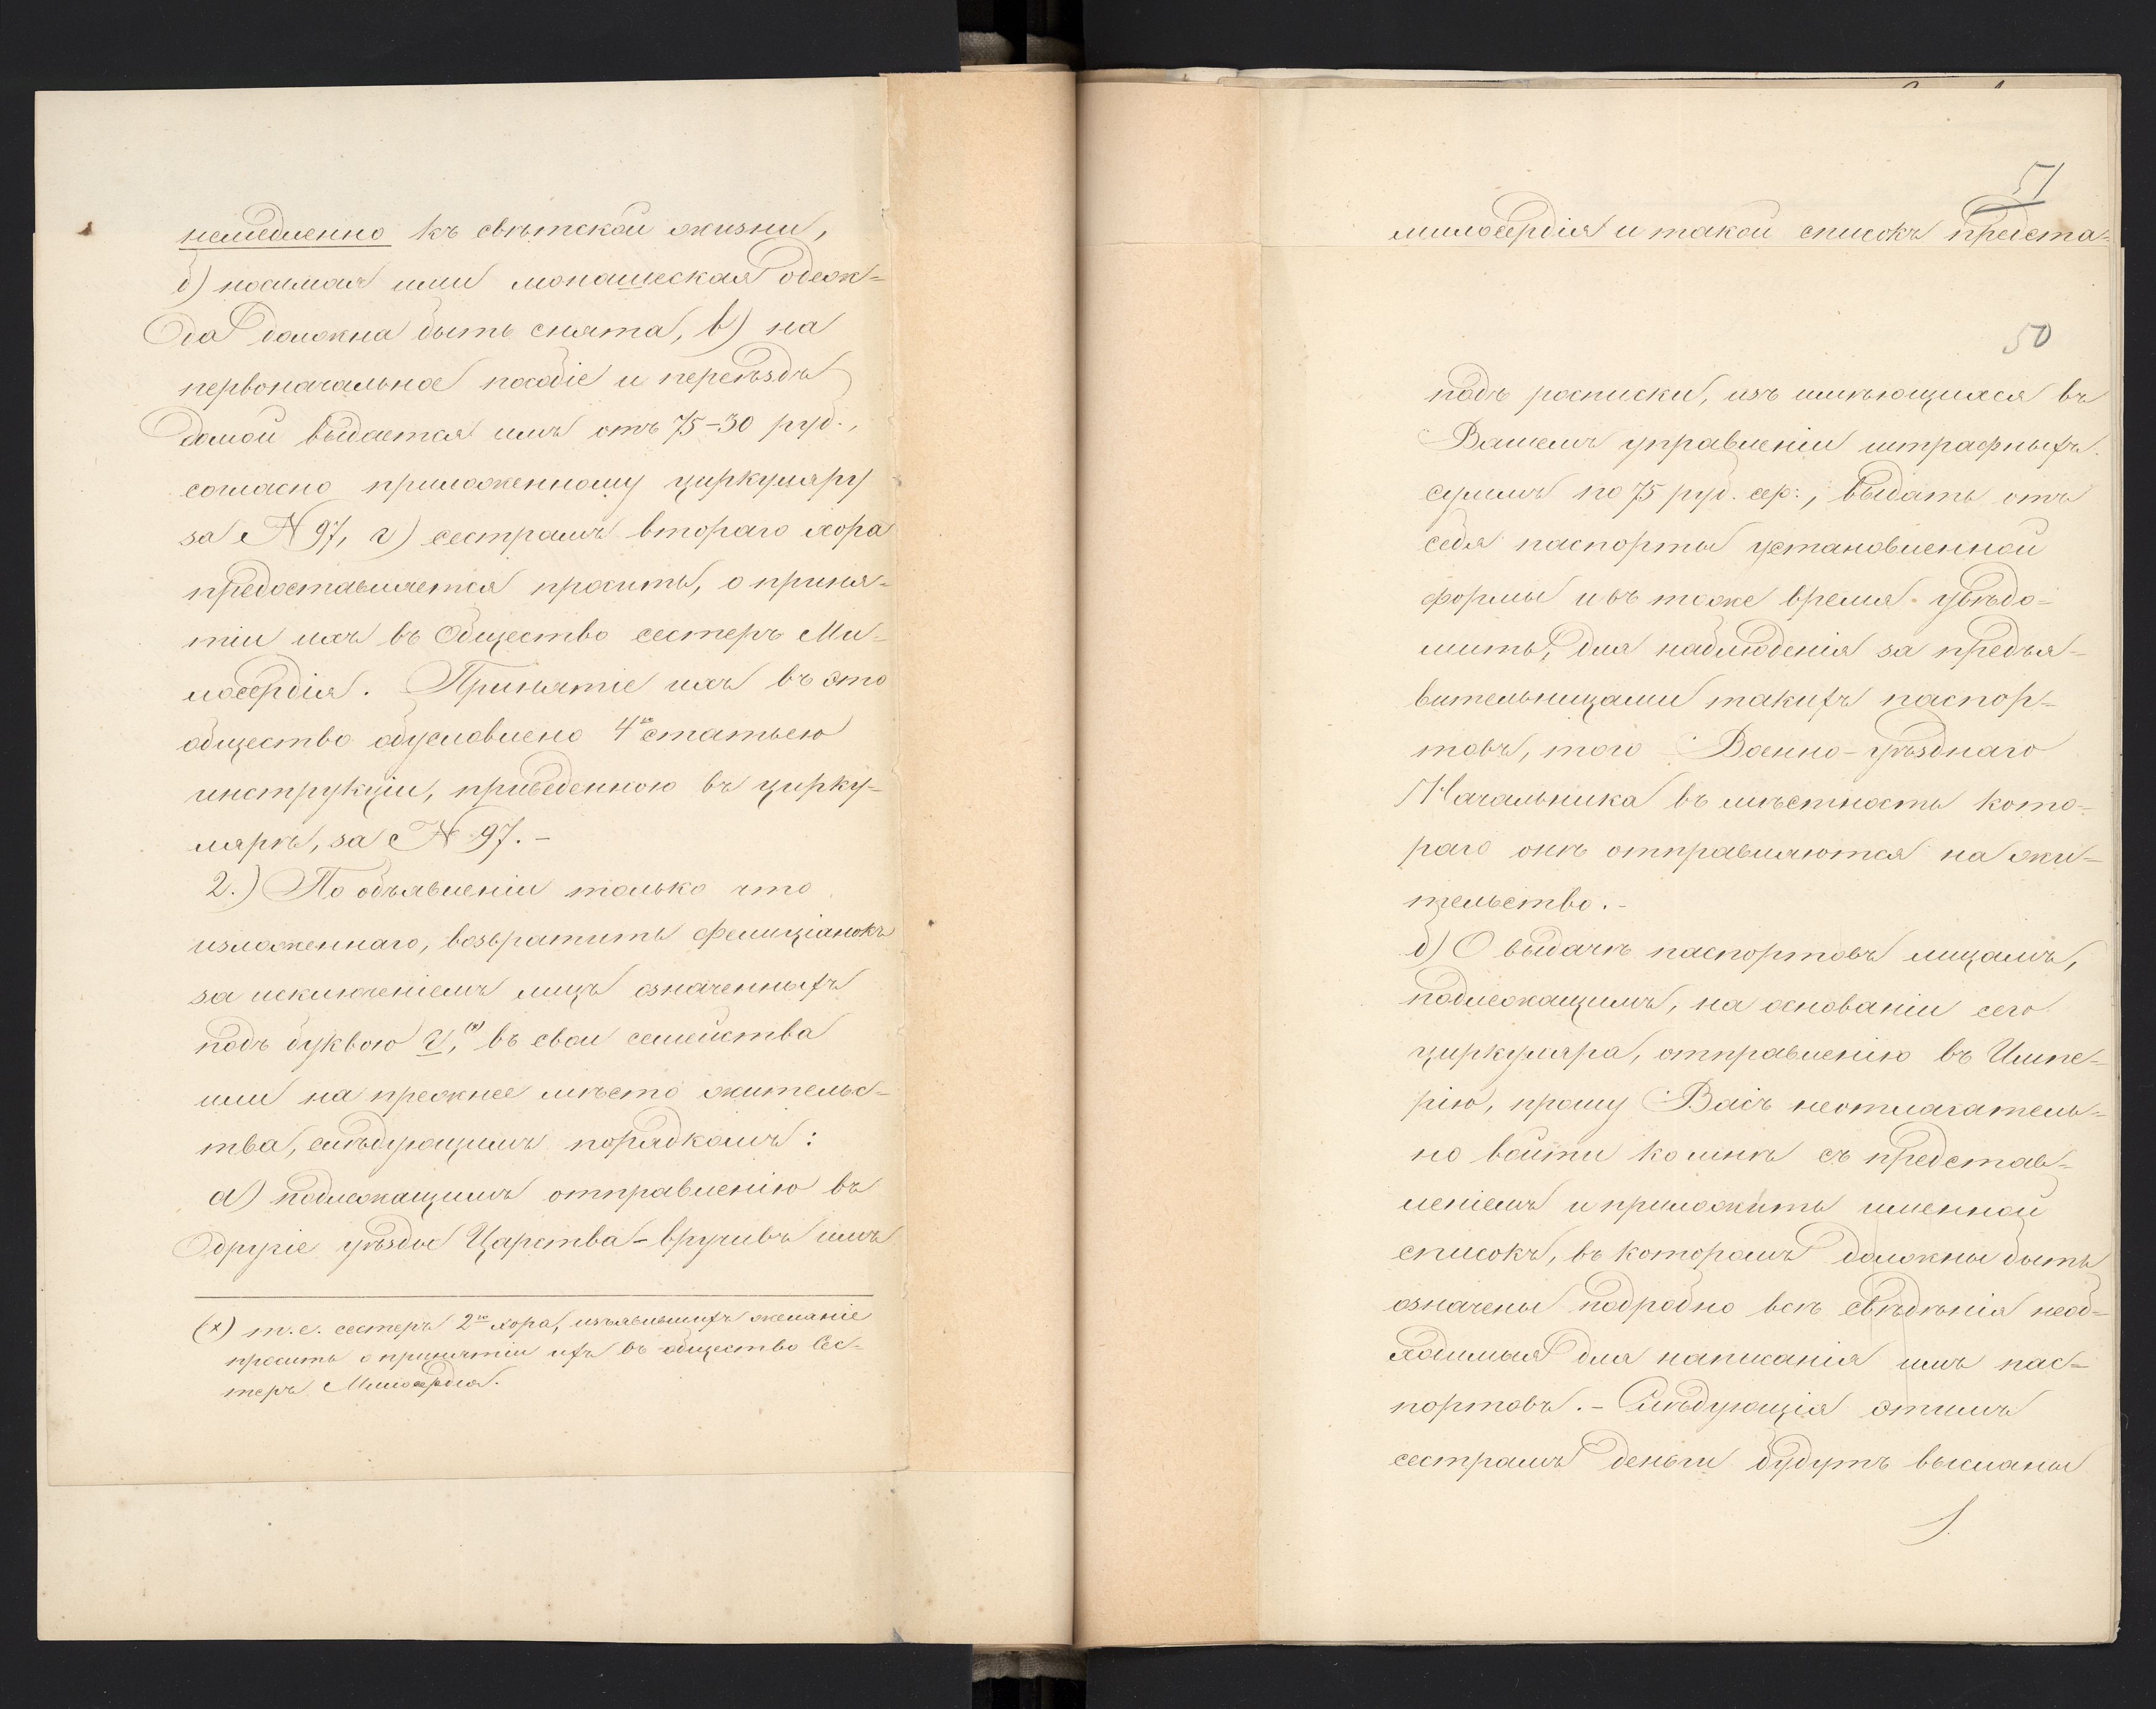 немедленно къ свѣтской жизни,
б) носимая ими монашеская одеж-
да должна быть снята, в) на
первоначальное пособіе и переѣздъ
домой выдается имъ отъ 75-30 руб.,
согласно приложенному циркуляру
за №97, г) сестрамъ втораго хора
предоставляется просить, о приня-
тіи ихъ въ Общество сестеръ Ми-
лосердія. Принятіе ихъ въ это
общество обусловлено 4ю статьею
инструкціи, приведенною въ цирку-
лярѣ, за №97.-
2.) По объявленіи только что
изложеннаго, возвратить фелиціанокъ
за исключеніемъ лицъ означенныхъ
подъ буквою г, (х) въ свои семейства
или на прежнее мѣсто жительс-
тва, слѣдующимъ порядкомъ:
а) подлежащимъ отправленію въ
другіе уѣзды Царства - вручивъ имъ
(х) т.е. сестеръ 2го хора, изъявившихъ желаніе
просить о принятіи ихъ въ общество Сес-
теръ Милосердія.
51
милосердія и такой списокъ предста-
50
подъ росписки, изъ имѣющихся въ
Вашемъ управленіи штрафныхъ
суммъ по 75 руб. сер:, выдать отъ
себя паспорты установленной
формы и въ тоже время увѣдо-
мить, для наблюденія за предъя-
вительницами такихъ паспор-
товъ, того Военно-уѣзднаго
Начальника въ мѣстность кото-
раго онѣ отправляются на жи-
тельство.-
б) О выдачѣ паспортовъ лицамъ,
подлежащимъ, на основаніи сего
циркуляра, отправленію въ Импе-
рію, прошу Васъ неотлагатель-
но войти ко мнѣ съ представ-
леніемъ и приложить именной
списокъ, въ которомъ должны быть
означены подробно всѣ свѣдѣнія необ-
ходимыя для написанія имъ пас-
портовъ.- Слѣдующія этимъ
сестрамъ деньги будутъ высланы